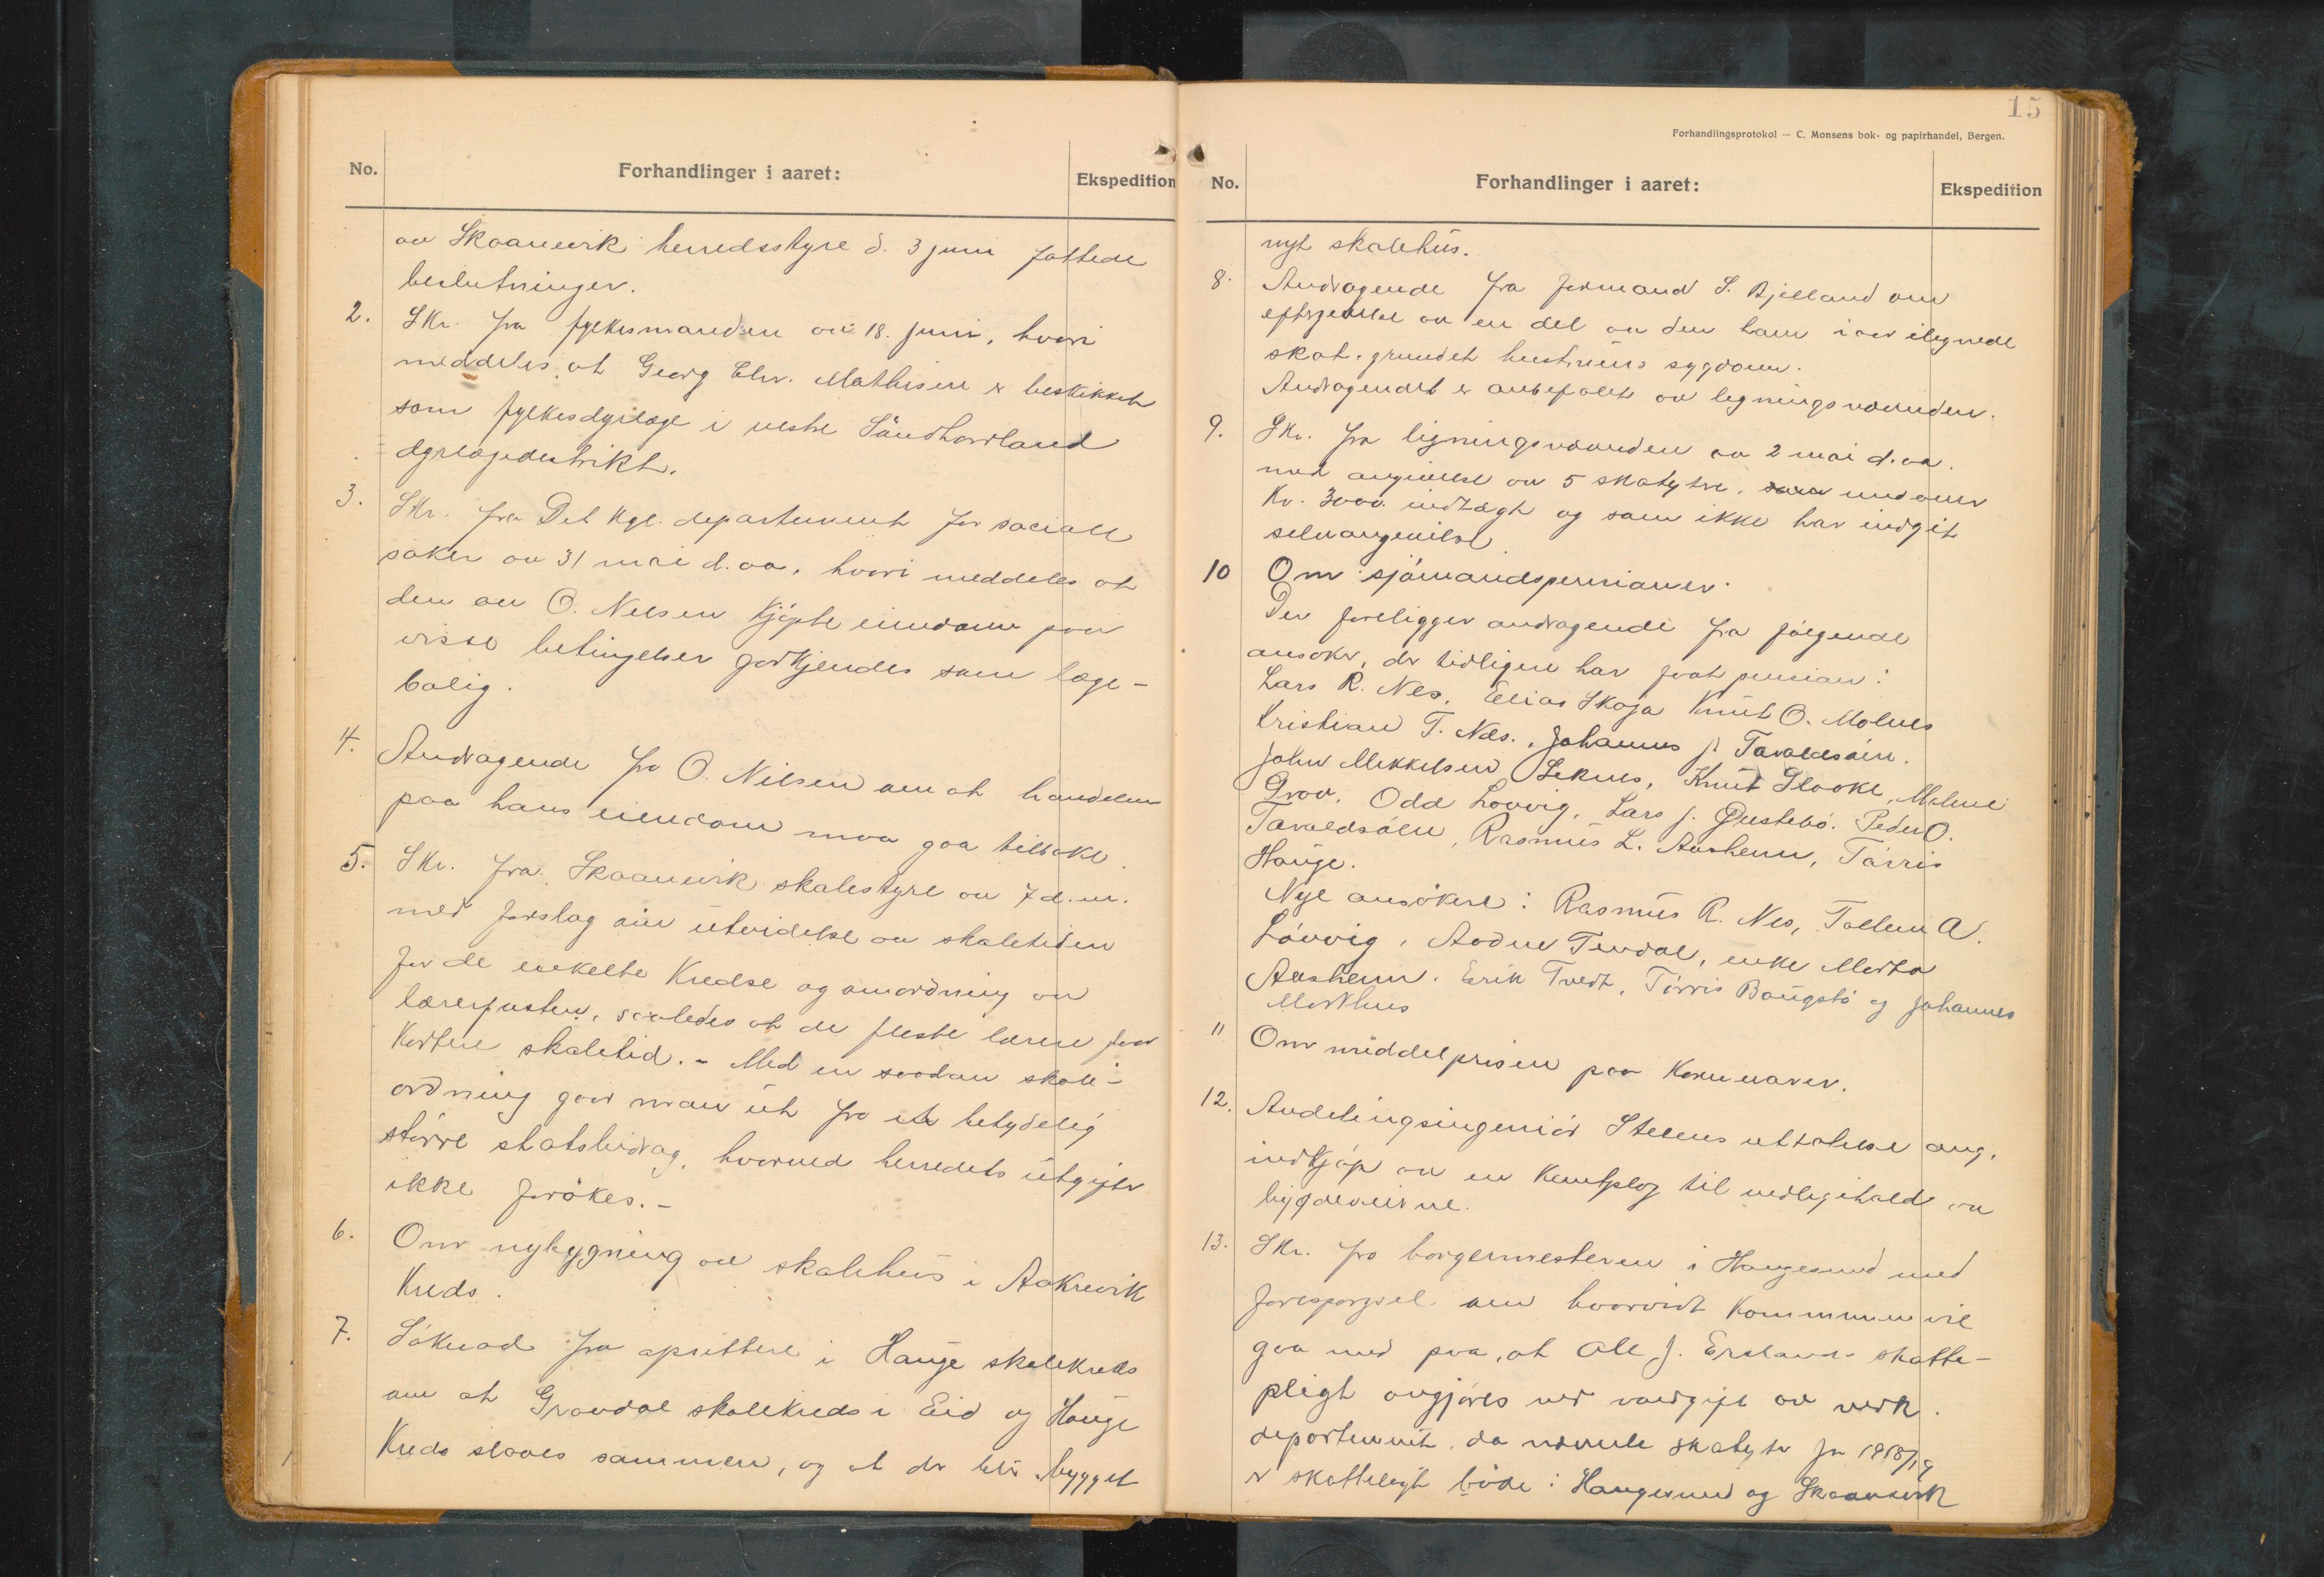 No.
Forhandlinger i aaret:
Ekspedition
av Skaanevik herredsstyre d. 3 juni fattede
beslutninger.
2. Skr. fra fylkesmanden av 18. juni, hvori
meddeles, at Georg Chr. Mathisen er beskikket
som fylkesdyrlæge i vestre Sündhordland
dyrlægedistrikt.
3. Skr. fra Det kgl. departement for sociale
saker av 31 mai d.aa. hvori meddeles at
den av O. Nelsen kjöpte eiendom paa
visse betingelser godkjendes som læge-
bolig.
4. Andragende fra O. Nilsen om at handelen
paa hans eiendom maa gaa tilbake.
5. Skr. fra Skaanevik skolestyre av 7 d.m.
med forslag om utvidelse av skoletiden
for de enkelte kredse og omordning av
lærerposten, saaledes at de fleste lærere faar
kortere skoletid. - Med en saadan skole-
ordning gaar man üt fra et betydelig
större statsbidrag, hvorved herredets ütgifter
ikke forökes. -
6. Om nybygning av skolehüs i Aakrevik
kreds.
7. Söknad fra opsittere i Haüge skolekreds
om at Gravdal skolekreds i Eid og Haüge
kreds slaaes sammen, og at der blir bygget
15
Forhandlingsprotokol — C. Monsens bok- og papirhandel, Bergen.
No.
Forhandlinger i aaret:
Ekspedition
nyt skolehüs.
8. Andragende fra formand S. Bjelland om
eftergivelse av en del av den ham i aar ilignede
skat, grundet hustrües sygdom.
Andragendet er anbefalet av ligningsnævnden.
9. Skr. fra ligningsnævnden av 2 mai d.aa.
med angivelse av 5 skatytere, med over
Kr. 3000 indtægt og som ikke har indgit
selvangivelse.
10 Om sjömandspensioner.
Der foreligger andragende fra fölgende
ansökr, der tidligere har faat pension:
Lars R. Nes, Elias Skaga Knut O. Molnes
Kristian T. Næs., Johannes J. Tavaldsöen.
John Mikkelsen Leknes, Knut Flaake, Malene
Grov, Odd Lovvig, Lars J. Östebö. Peder O.
Tavaldsöen, Rasmüs L. Aasheim, Törris
Haüge.
Nye ansökere: Rasmüs R. Nes, Tollem A.
Lövvig, Aadne Tindal, enke Marta
Aasheim. Erik Tvedt, Törris Baügstö og Johannes
Markhus
11 Om middelprisen paa kornvarer.
12. Avdelingsingeniör Steens uttalelse ang.
indkjöp av en kantplog til vedlikehold av
bygdeveiene.
13. Skr. fra borgermesteren i Haugesund med
forespörgsel om hvorvidt kommunen vil
gaa med paa, at Ole J. Ersland's skatte-
pligt avgjöres ved voldgift av vedk.
departement, da nævnte skatyter for 1918/19
er skattelegt både i Haugesund og Skaanevik